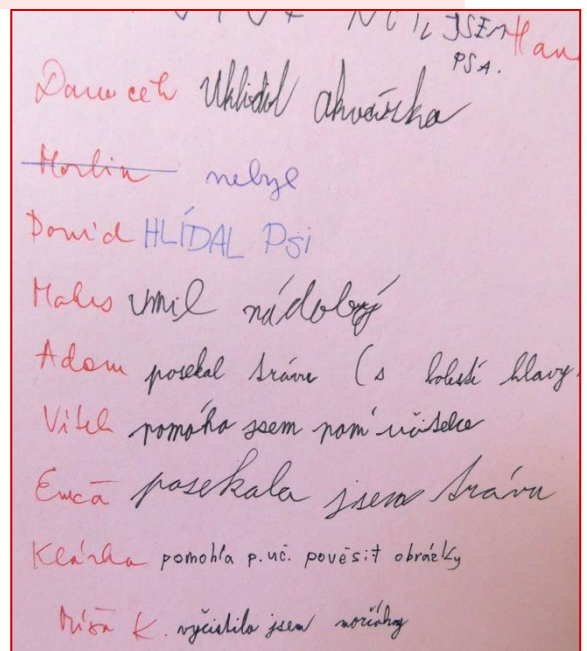 JSEM
PSA.
Uklidil akvárka
nebyl
David HLÍDAL Psi
umil nádobý
Adam posekal trávu (s bolestí hlavy
Vítek pomáho jsem paní učitelce
Emča posekala jsem trávu
Klárka pomohla p. uč. pověsit obrázky
Míša K. vyčistila jsem